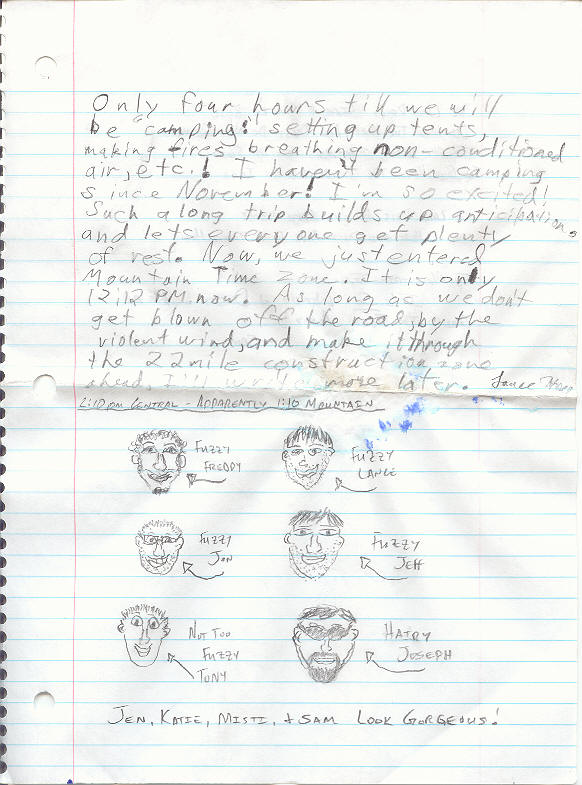 Only four hours till we will
be "camping!" setting up tents,
making fires breathing non-conditioned
air, etc.! I haven't been camping
since November! I'm so excited!
Such a long trip builds up anticipation,
and lets everyone get plenty
of rest. Now, we just entered
Mountain Time Zone. It is only
12:12 P.M. now. As long as we don't
get blown off the road, by the
violent wind, and make it through
the 22 mile construction zone
ahead, I'll write more later. Lance
2:10 pm Central - Apparently 1:10 Mountain
Fuzzy
Freddy
Fuzzy
Lance
Fuzzy
Jon
Fuzzy
Jeff
Not Too
Fuzzy
Tony
Hairy
Joseph
Jen, Katie, Misti, + Sam Look Gorgeous!